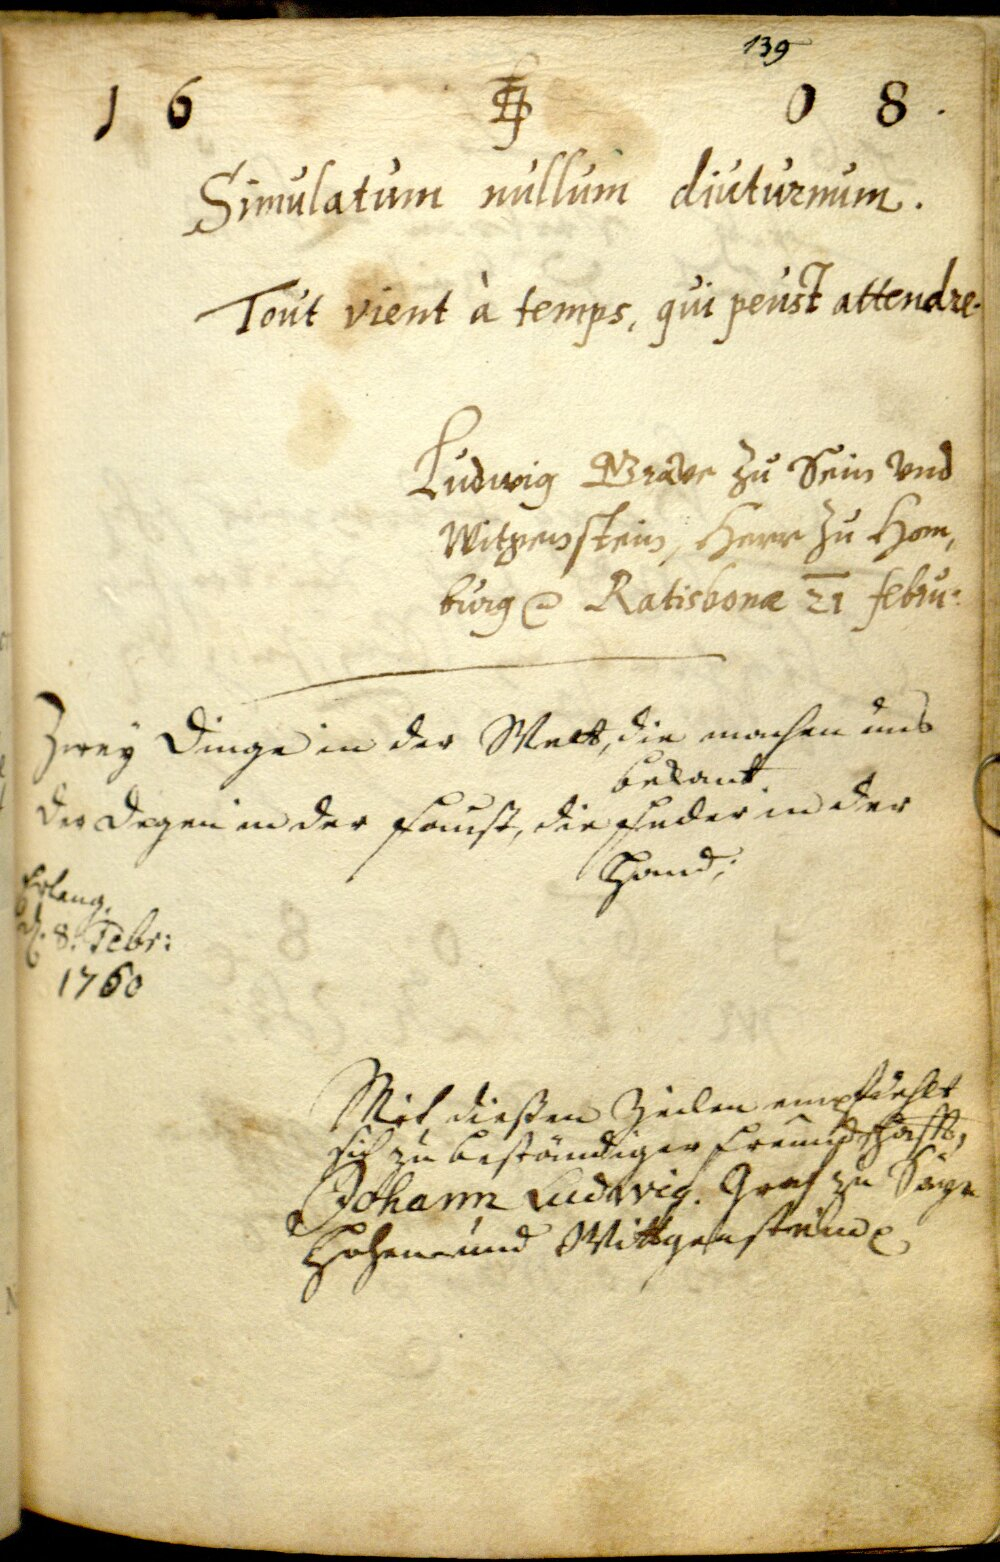 139
16 08.
Simulatum nullum diuturnum.
Tout vient à temps, qui peust attendre.
Ludwig Grave zu Sein vnd
Witgenstein, Herr zu Hom,
burg Ratisbonæ 21 febru:
Zwey Dinge in der Welt, die machen uns
bekant
Der Degen in der Faust, die Feder in der
Hand;
Erlang.
d. 8. Febr:
1760
Mit dießen Zeilen empfiehlt
sich zu beständiger Freundschafft,
Johann Ludwig. Graf zu Sayn
Hohen und Wittgenstein